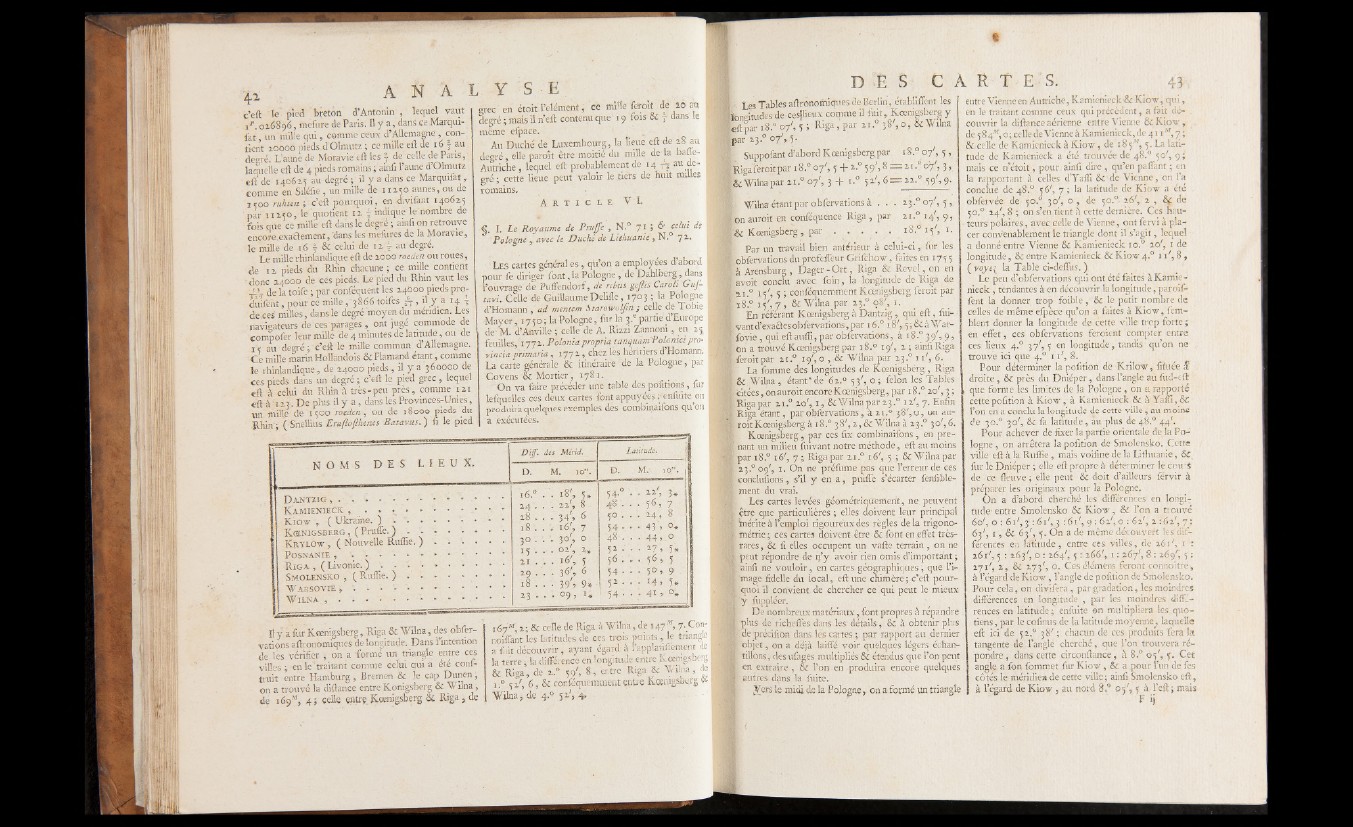 42 A N A L Y S E
c'est le pied breton d'Antonin, lequel vaut
1ᴾ.026896, mesure de Paris. Il y a, dans ce Marqui-
sat, un mille qui, comme ceux d'Allemagne, con-
tient 20000 pieds d'Olmutz; ce mille est de 16 au
degré. L'aune de Moravie est les de celle de Paris,
laquelle est de 4 pieds romains; ainsi l'aune d'Olmutz
est de 140625 au degré; il y a dans ce Marquisat,
comme en Silésie, un mille de 11250 aunes, ou de
1500 ruthen; c'est pourquoi, en divisant 140625
par 11250, le quotient 12 indique le nombre de
fois que ce mille est dans le degré; ainsi on retrouve
encore exactement, dans les mesures de la Moravie,
le mille de 16 & celui de 12 au degré.
Le mille rhinlandique est de 2000 roeden ou roues,
de 12 pieds du Rhin chacune; ce mille contient
donc 24000 de ces pieds. Le pied du Rhin vaut les
de la toise; par conséquent les 24000 pieds pro-
duisent, pour ce mille, 3866 toises, il y a 14
de ces milles, dans le degré moyen du méridien. Les
navigateurs de ces parages, ont jugé commode de
composer leur mille de 4 minutes de latitude, ou de
15 au degré; c'est le mille commun d'Allemagne.
Ce mille marin Hollandois & Flamand étant, comme
le rhinlandique, de 24000 pieds, il y a 360000 de
ces pieds dans un degré; c'est le pied grec, lequel
est à celui du Rhin à très-peu près, comme 121
est à 123. De plus il y a, dans les Provinces-Unies,
un mille de 1500 roeden, ou de 18000 pieds du
Rhin; (Snellius Eratosthenes Batavus.) si le pied
grec en étoit l'élément, ce mille seroit de 20 au
degré; mais il n'est contenu que 19 fois & dans le
même espace.
Au Duché de Luxembourg, la lieue est de 28 au
degré, elle paroît être moitié du mille de la basse-
Autriche, lequel est probablement de 14 au de-
gré; cette lieue peut valoir le tiers de huit milles
romains.
ARTICLE VI.
§. I. Le Royaume de Prusse, N.° 71; & celui de
Pologne, avec le Duché de Lithuanie, N.° 72.
LES cartes générales, qu'on a employées d'abord
pour se diriger sont, la Pologne, de Dahlberg, dans
l'ouvrage de Puffendorf, de rebus gestis Caroli Gus-
tavi. Celle de Guillaume Delisle, 1703; la Pologne
d'Homann, ad mentem Starowolsin; celle de Tobie
Mayer, 1750; la Pologne, sur la 3.e partie d'Europe
de M. d'Anville; celle de A. Rizzi Zannoni, en 25
feuilles, 1772. Polonia propria tanquam Polonicæ pro-
vincia primaria, 1772, chez les héritiers d'Homann.
La carte générale & itinéraire de la Pologne, par
Covens & Mortier, 1781.
On va faire précéder une table des positions, sur
lesquelles ces deux cartes sont appuyées; ensuite on
produira quelques exemples des combinaisons qu'on
a exécutées.
NOMS DES LIEUX. Diff. des Mérid. Latitude.
D. M. 10es. D. M. 10es.
DANTZIG, . . . 16.° . . 18′, 5. 54.° . . 22′, 3.
KAMIENIECK, . . . 24 . . . 22′, 8 48 . . . 56, 7
KIOW, (Ukraine.) . . . 28 . . . 34′, 6 50 . . . 24, 8
KŒNIGSBERG, (Prusse.) . . . 18 . . . 16′, 7 54 . . . 43, 0.
KRYLOW, (Nouvelle Russie.) . . . 30 . . . 30′, 0 48 . . . 44, 0
POSNANIE, . . . 15 . . . 02′, 2. 52 . . . 27, 5.
RIGA, (Livonie.) . . . 21 . . . 16′, 5 56 . . . 56, 5
SMOLENSKO, (Russie.) . . . 29 . . . 36′, 6 54 . . . 50, 9
WARSOVIE, . . . 18 . . . 39′, 9. 52 . . . 14, 5.
WILNA, . . . 23 . . . 09, 1. 54 . . . 41, 0.
Il y a sur Kœnigsberg, Riga & Wilna, des obser-
vations astronomiques de longitude. Dans l'intention
de les vérifier, on a formé un triangle entre ces
villes; en le traitant comme celui qui a été cons-
truit entre Hamburg, Bremen & le cap Dunen,
on a trouvé la distance entre Konigsberg & Wilna,
de 169ᴹ, 4; celle entre Kœnigsberg & Riga, de
167ᴹ, 2; & celle de Riga à Wilna, de 147ᴹ, 7. Con-
noissant les latitudes de ces trois points, le triangle
a fait découvrir, ayant égard à l'applatissement de
la terre, la différence en longitude entre Kœnigsberg
& Riga, de 2.° 59′, 8, entre Riga & Wilna, de
1.° 52′, 6, & conséquemment entre Kœnigsberg &
Wilna, de 4.° 52′, 4.
D E S C A R T E S. 43
Les Tables astronomiques de Berlin, établissent les
longitudes de ces lieux comme il suit, Kœnigsberg y
est par 18.° 07′, 5; Riga, par 21.° 38′, 0, & Wilna
par 23.° 07′, 5.
Supposant d'abord Kœnigsberg par 18.° 07′, 5,
Riga seroit par 18.° 07′, 5 + 2.° 59′, 8 = 21.° 07′, 3,
& Wilna par 21.° 07′, 3 + 1.° 52′, 6 = 22.° 59′, 9.
Wilna étant par observations à . . . 23.° 07′, 5,
on auroit en conséquence Riga, par 21.° 14′, 9,
& Kœnigsberg, par . . . . . 18.° 15′, 1.
Par un travail bien antérieur à celui-ci, sur les
observations du professeur Grischow, faites en 1755
à Arensburg, Dager-Ort, Riga & Revel, on en
avoit conclu avec soin, la longitude de Riga de
21.° 15′, 5; conséquemment Kœnigsberg seroit par
18.° 15′, 7, & Wilna par 23.° 08′, 1.
En référant Kœnigsberg à Dantzig, qui est, sui-
vant d'exactes observations, par 16.° 18′, 5; & à War-
sovie, qui est aussi, par observations, à 18.° 39′, 9,
on a trouvé Kœnigsberg par 18.° 19′, 2; ainsi Riga
seroit par 21.° 19′, 0, & Wilna par 23.° 11′, 6.
La somme des longitudes de Kœnigsberg, Riga
& Wilna, étant de 62.° 53′, 0; selon les Tables
citées, on auroit encore Kœnigsberg, par 18.° 20′, 3;
Riga par 21.° 20′, 1, & Wilna par 23.° 12′, 7. Enfin
Riga étant, par observations, à 21.° 38′, 0, on au-
roit Kœnigsberg à 18.° 38′, 2, & Wilna à 23.° 30′, 6.
Kœnigsberg, par ces six combinaisons, en pre-
nant un milieu suivant notre méthode, est au moins
par 18.° 16′, 7; Riga par 21.° 16′, 5; & Wilna par
23.° 09′, 1. On ne présume pas que l'erreur de ces
conclusions, s'il y en a, puisse s'écarter sensible-
ment du vrai.
Les cartes levées géométriquement, ne peuvent
être que particulières; elles doivent leur principal
mérite à l'emploi rigoureux des règles de la trigono-
métrie; ces cartes doivent être & sont en effet très-
rares, & si elles occupent un vaste terrain, on ne
peut répondre de n'y avoir rien omis d'important;
ainsi ne vouloir, en cartes géographiques, que l'i-
mage fidelle du local, est une chimère; c'est pour-
quoi il convient de chercher ce qui peut le mieux
y suppléer.
De nombreux matériaux, sont propres à répandre
plus de richesses dans les détails, & à obtenir plus
de précision dans les cartes; par rapport au dernier
objet, on a déja laissé voir quelques légers échan-
tillons, des usages multipliés & étendus que l'on peut
en extraire, & l'on en produira encore quelques
autres dans la suite.
Vers le midi de la Pologne, on a formé un triangle
entre Vienne en Autriche, Kamienieck & Kiow, qui,
en le traitant comme ceux qui précèdent, a fait dé-
couvrir la distance aérienne entre Vienne & Kiow,
de 584ᴹ, 0; celle de Vienne à Kamienieck, de 411ᴹ, 7;
& celle de Kamienieck à Kiow, de 185ᴹ, 5. La lati-
tude de Kamienieck a été trouvée de 48.° 50′, 9;
mais ce n'étoit, pour ainsi dire, qu'en passant; en
la rapportant à celles d'Yassi & de Vienne, on l'a
conclue de 48.° 56′, 7; la latitude de Kiow a été
observée de 50.° 30′, 0, de 50.° 26′, 2, & de
50.° 24′, 8; on s'en tient à cette dernière. Ces hau-
teurs polaires, avec celle de Vienne, ont servi à pla-
cer convenablement le triangle dont il s'agit, lequel
a donné entre Vienne & Kamienieck 10.° 20′, 1 de
longitude, & entre Kamienieck & Kiow 4.° 11′, 8,
(voyez la Table ci-dessus.)
Le peu d'observations qui ont été faites à Kamie-
nieck, tendantes à en découvrir la longitude, parois-
sent la donner trop foible, & le petit nombre de
celles de même espèce qu'on a faites à Kiow, sem-
blent donner la longitude de cette ville trop forte;
en effet, ces observations feroient compter entre
ces lieux 4.° 37′, 5 en longitude, tandis qu'on ne
trouve ici que 4.° 11′, 8.
Pour déterminer la position de Krilow, située à
droite, & près du Dniéper, dans l'angle au sud-est
que forme les limites de la Pologne, on a rapporté
cette position à Kiow, à Kamienieck & à Yassi, &
l'on en a conclu la longitude de cette ville, au moins
de 30.° 30′, & sa latitude, au plus de 48.° 44′.
Pour achever de fixer la partie orientale de la Po-
logne, on arrêtera la position de Smolensko. Cette
ville est à la Russie, mais voisine de la Lithuanie, &
sur le Dniéper; elle est propre à déterminer le cours
de ce fleuve; elle peut & doit d'ailleurs servir à
préparer les originaux pour la Pologne.
On a d'abord cherché les différences en longi-
tude entre Smolensko & Kiow, & l'on a trouvé
60′, 0 : 61′, 3 : 61′, 3 : 61′, 9 : 62′, 0 : 62′, 2 : 62′, 7 :
63′, 1, & 63′, 5. On a de même découvert les dif-
férences en latitude, entre ces villes, de 261′, 1 :
261′, 5 : 263′, 0 : 264′, 5 : 266′, 1 : 267′, 8 : 269′, 5 :
271′, 2, & 273′, 0. Ces élémens feront connoître,
à l'égard de Kiow, l'angle de position de Smolensko.
Pour cela, on divisera, par gradation, les moindres
différences en longitude, par les moindres diffé-
rences en latitude; ensuite on multipliera les quo-
tiens, par le cosinus de la latitude moyenne, laquelle
est ici de 52.° 38′; chacun de ces produits sera la
tangente de l'angle cherché, que l'on trouvera ré-
pondre, dans cette circonstance, à 8.° 05′, 5. Cet
angle a son sommet sur Kiow, & a pour l'un de ses
côtés le méridien de cette ville; ainsi Smolensko est,
à l'égard de Kiow, au nord 8.° 05′, 5 à l'est; mais
F ij